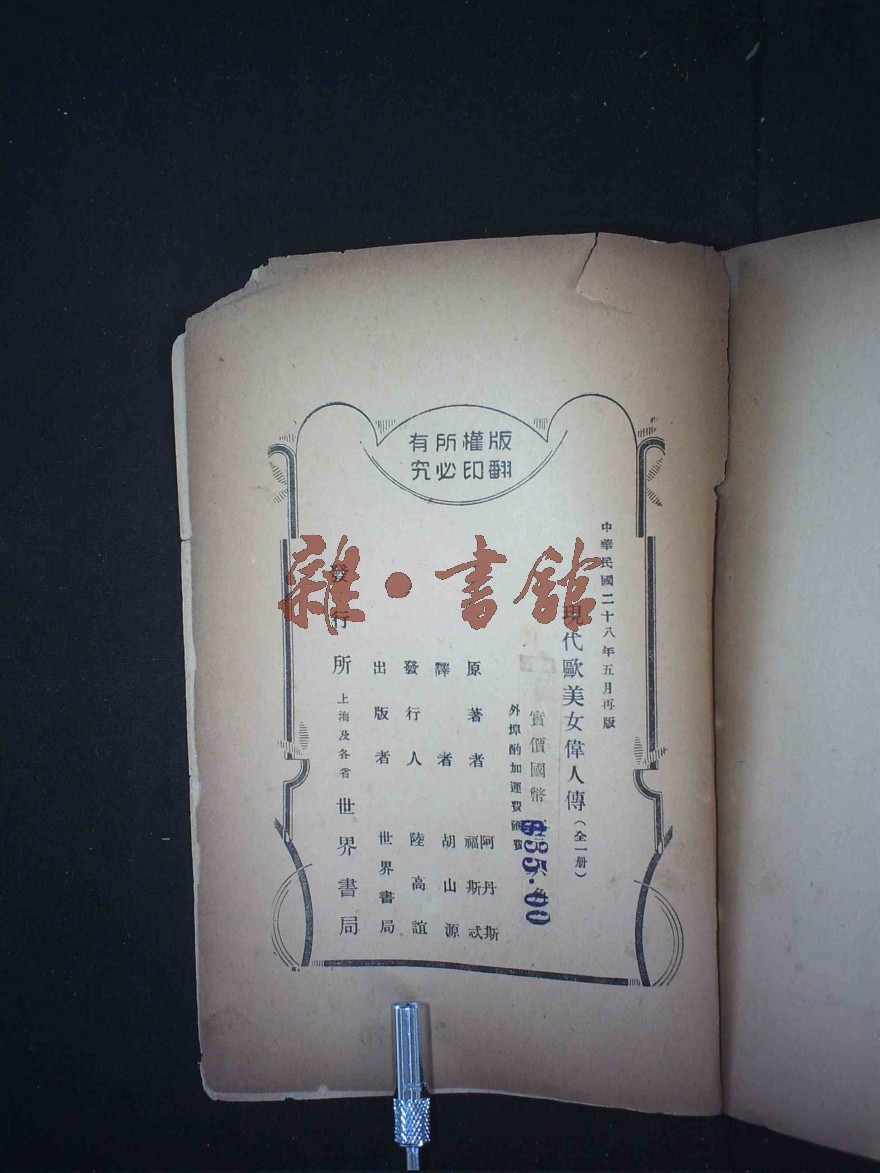 版權所有
翻印必究
中華民國二十八年五月再版
現代歐美女偉人傳(全一册)
實價國幣
$35.00
外埠酌加運費匯費
原著者 阿丹斯 福斯忒
譯者 胡山源
發行人 陸高誼
出版者 世界書局
發行所 上海及各省 世界書局
雜·書館